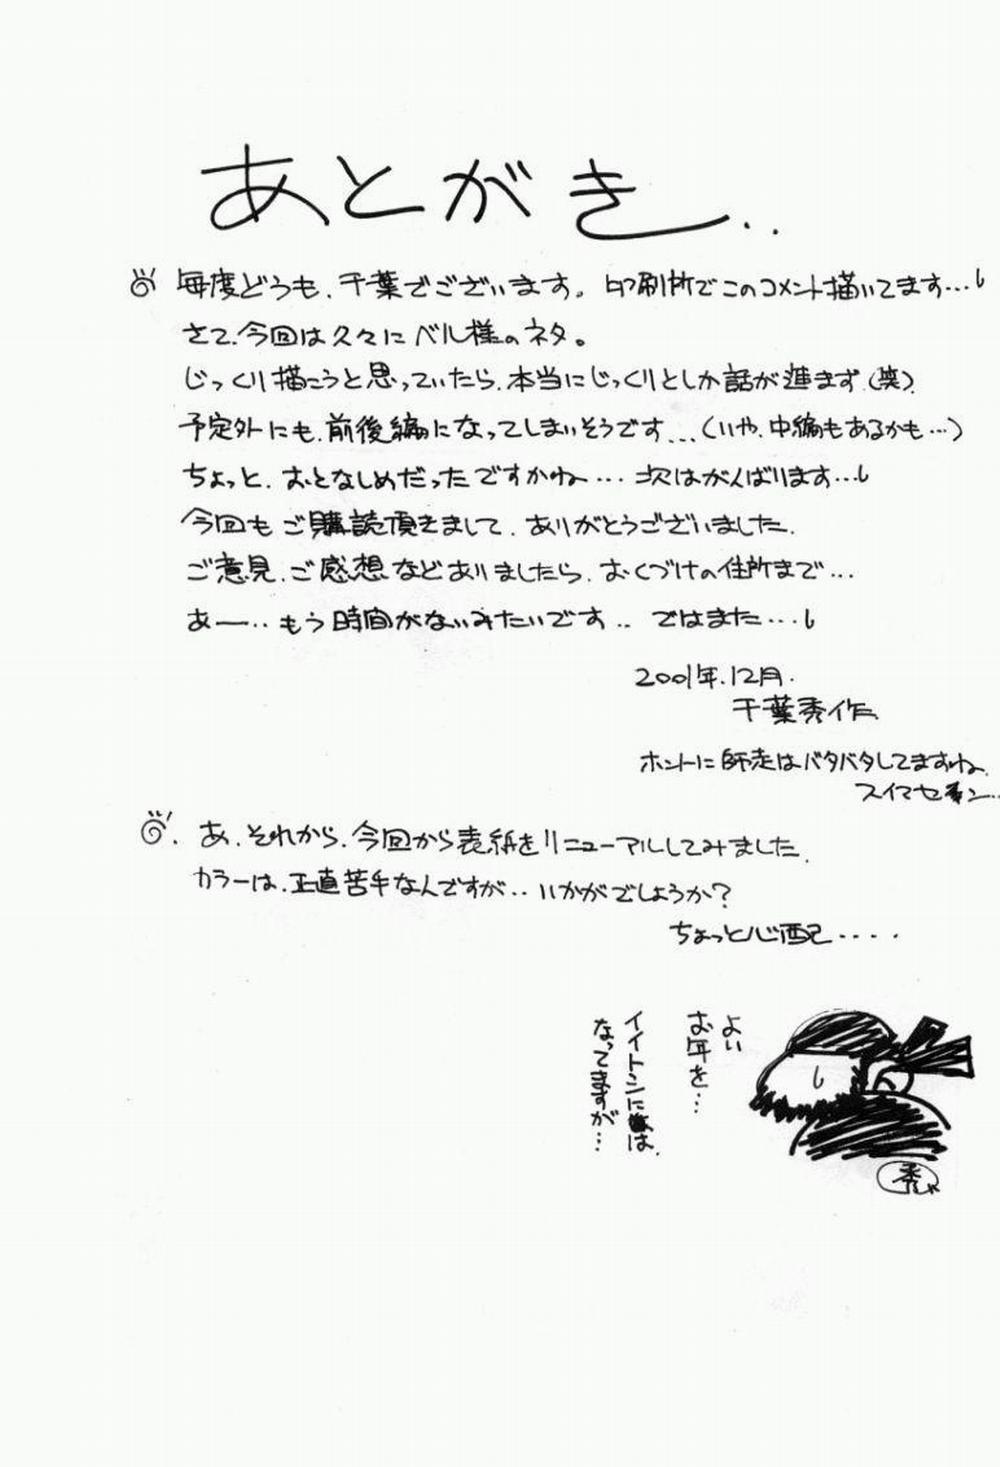 あとがき..
毎度どうも、千葉でございます。印刷所でこのコメント描いてます…
さて、今回は久々にベル様のネタ。
じっくり描こうと思っていたら、本当にじっくりとしか話が進まず、(笑)
予定外にも、前後編になってしまいそうです…(いや、中編もあるかも…)
ちょっと、おとなしめだったですかね… 次はがんばります…
今回もご購読頂きまして、ありがとうございました。
ご意見、ご感想などありましたら、おくづけの住所まで…
あー…もう時間がないみたいです.. ではまた…
2001年.12月.
千葉秀作
ホントに師走はバタバタしてますね。
スイマセン…
あ、それから、今回から表紙をリニューアルしてみました。
カラーは、正直苦手なんですが..いかがでしょうか?
ちょっと心配....
よい
お年を…
イイトシには、
なってますが…
秀